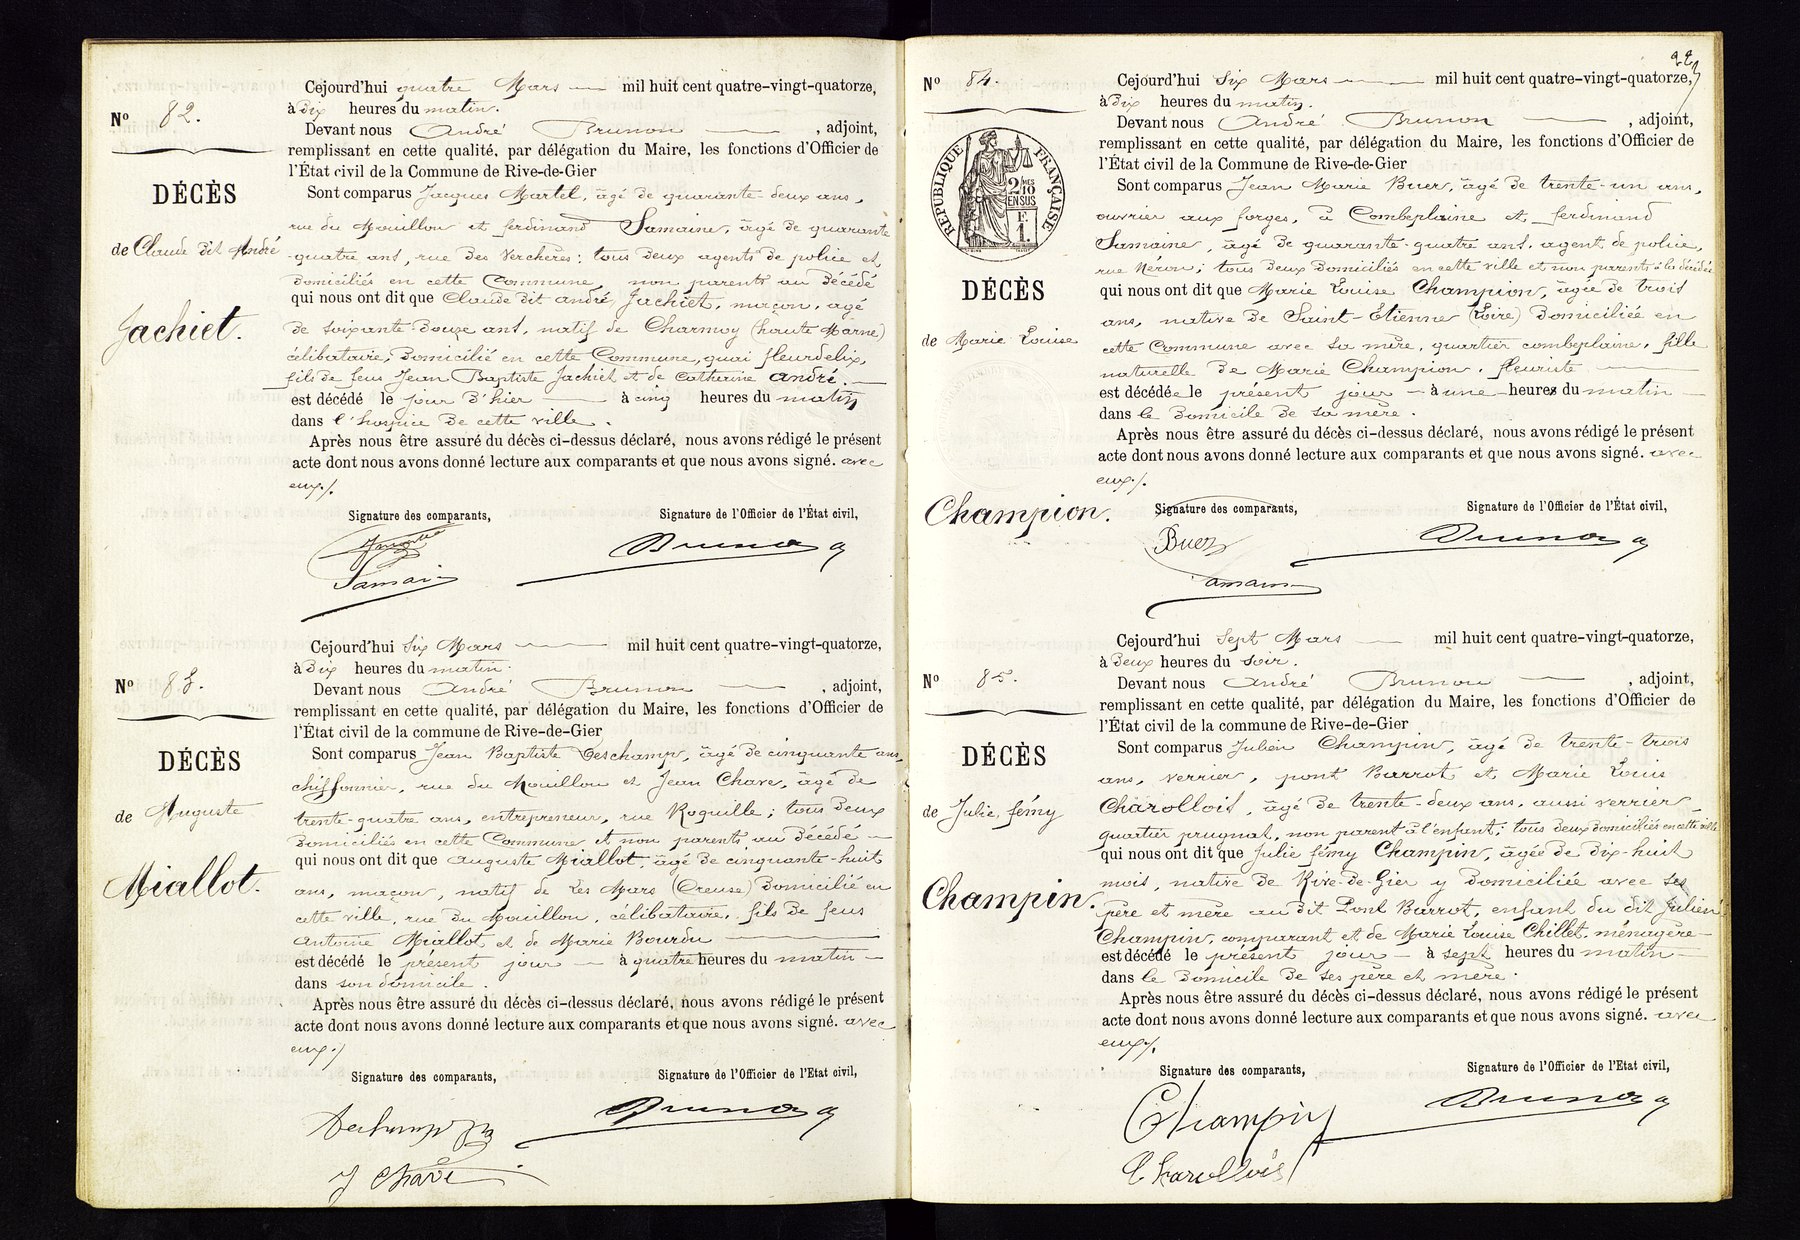 N° 82.
DÉCÈS
de Claude dit André
Jachiet.
Cejourd'hui quatre Mars — mil huit cent quatre-vingt-quatorze,
à Dix heures du matin.
Devant nous André Brunon — , adjoint,
remplissant en cette qualité, par délégation du Maire, les fonctions d'Officier de
l'État civil de la Commune de Rive-de-Gier
Sont comparus Jacques Martel, âgé de quarante-deux ans,
rue du Mouillon et ferdinand Samaine, âgé de quarante
quatre ans, rue des Verchères; tous deux agents de police et
domiciliés en cette Commune, non parents au décédé
qui nous ont dit que Claude dit andré Jachiet, maçon, âgé
de soixante douze ans, natif de Charmoy (haute Marne)
célibataire, domicilié en cette Commune, quai fleurdelix,
fils de feus Jean Baptiste Jachiet et de Catherine André. —
est décédé le jour d'hier — à cinq heures du matin
dans l'hospice de cette ville.
Après nous être assuré du décès ci-dessus déclaré, nous avons rédigé le présent
acte dont nous avons donné lecture aux comparants et que nous avons signé. avec
eux./.
Signature des comparants, Signature de l'Officier de l'État civil,
Samain Brunon
N° 83.
DÉCÈS
de Auguste
Miallot.
Cejourd'hui Six Mars — mil huit cent quatre-vingt-quatorze,
à Dix heures du matin.
Devant nous André Brunon — , adjoint,
remplissant en cette qualité, par délégation du Maire, les fonctions d'Officier de
l'État civil de la commune de Rive-de-Gier
Sont comparus Jean Baptiste Deschamp, âgé de cinquante ans,
chiffonnier, rue du Mouillon et Jean Chave, âgé de
trente-quatre ans, entrepreneur, rue Roquille; tous deux
domiciliés en cette Commune et non parents au décédé —
qui nous ont dit que Auguste Miallot, âgé de cinquante-huit
ans, maçon, natif de Les Mars (Creuse) domicilié en
cette ville, rue du Mouillon, célibataire, fils de feus
Antoine Miallot et de Marie Bourdu —
est décédé le présent jour — à quatre heures du matin —
dans son domicile.
Après nous être assuré du décès ci-dessus déclaré, nous avons rédigé le présent
acte dont nous avons donné lecture aux comparants et que nous avons signé. avec
eux./
Signature des comparants, Signature de l'Officier de l'Etat civil,
Deschamp Brunon
J Chave
22
N° 84.
RÉPUBLIQUE FRANÇAISE
2/10 MES EN SUS
F 1.
DÉCÈS
de Marie Louise
Champion.
Cejourd'hui Six Mars — mil huit cent quatre-vingt-quatorze,
à Dix heures du matin.
Devant nous André Brunon — , adjoint,
remplissant en cette qualité, par délégation du Maire, les fonctions d'Officier de
l'État civil de la Commune de Rive-de-Gier
Sont comparus Jean Marie Buer, âgé de trente-un ans,
ouvrier aux forges, à Combeplaine et ferdinand
Samaine, âgé de quarante-quatre ans, agent de police,
rue Néron; tous deux domiciliés en cette ville et non parents à la décédée
qui nous ont dit que Marie Louise Champion, âgée de trois
ans, native de Saint-Etienne (Loire) domiciliée en
cette Commune avec sa mère, quartier combeplaine, fille
naturelle de Marie Champion, fleuriste —
est décédée le présent jour — à une heures du matin —
dans le domicile de sa mère.
Après nous être assuré du décès ci-dessus déclaré, nous avons rédigé le présent
acte dont nous avons donné lecture aux comparants et que nous avons signé. avec
eux./.
Signature des comparants, Signature de l'Officier de l'État civil,
Buer Brunon
Samain
N° 85.
DÉCÈS
de Julie fémy
Champin.
Cejourd'hui Sept Mars — mil huit cent quatre-vingt-quatorze,
à Deux heures du soir.
Devant nous André Brunon — , adjoint,
remplissant en cette qualité, par délégation du Maire, les fonctions d'Officier de
l'État civil de la commune de Rive-de-Gier
Sont comparus Julien Champin, âgé de trente-trois
ans, verrier, pont Barrot et Marie Louis
Charollois, âgé de trente-deux ans, aussi verrier
quartier prugnat, non parent à l'enfant; tous deux domiciliés en cette ville
qui nous ont dit que Julie fémy Champin, âgée de dix-huit
mois, native de Rive-de-Gier y domiciliée avec ses
père et mère au dit Pont Barrot, enfant du dit Julien
Champin, comparant et de Marie Louise Chillet, ménagère —
est décédé le présent jour — à sept heures du matin —
dans le domicile de ses père et mère.
Après nous être assuré du décès ci-dessus déclaré, nous avons rédigé le présent
acte dont nous avons donné lecture aux comparants et que nous avons signé. avec
eux./.
Signature des comparants, Signature de l'Officier de l'Etat civil,
Champin Brunon
Charollois